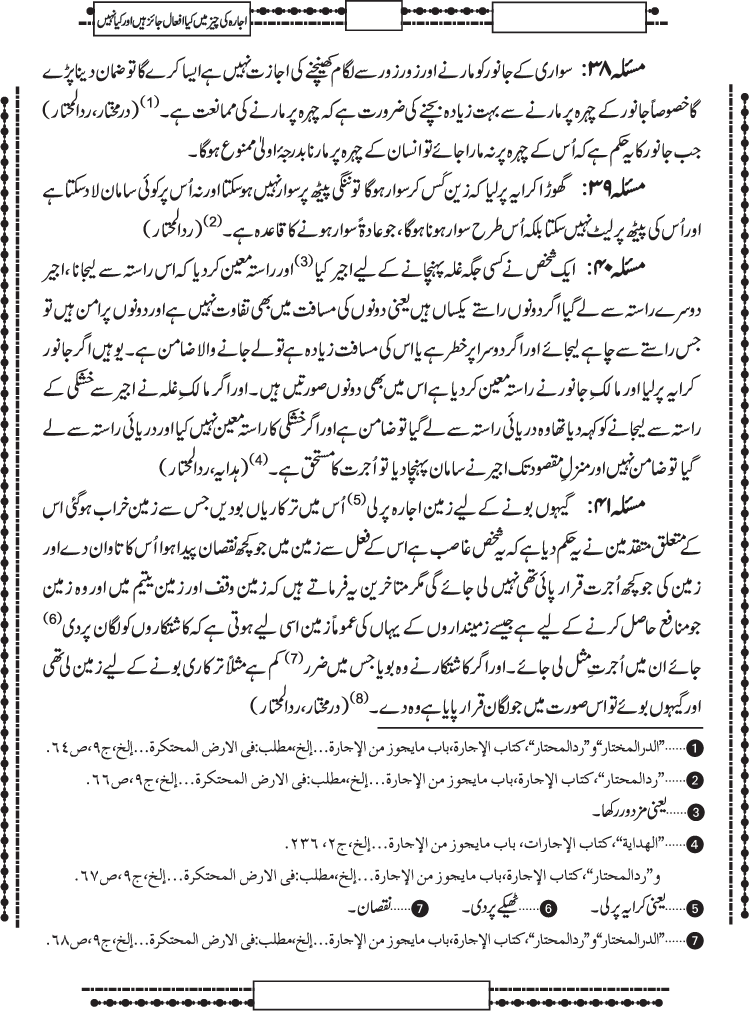 اجارہ کی چیز میں کیا افعال جائز ہیں اور کیا نہیں
مسئلہ ۳۸: سواری کے جانور کو مارنے اور زور زور سے لگام کھینچنے کی اجازت نہیں ہے ایسا کرے گا تو ضمان دینا پڑے
گا خصوصاً جانور کے چہرہ پر مارنے سے بہت زیادہ بچنے کی ضرورت ہے کہ چہرہ پر مارنے کی ممانعت ہے۔(1) (درمختار، ردالمحتار)
جب جانور کا یہ حکم ہے کہ اُس کے چہرہ پر نہ مارا جائے تو انسان کے چہرہ پر مارنا بدرجۂ اولیٰ ممنوع ہوگا۔
مسئلہ ۳۹: گھوڑا کرایہ پر لیا کہ زین کس کر سوار ہوگا تو ننگی پیٹھ پر سوار نہیں ہوسکتا اور نہ اُس پر کوئی سامان لاد سکتا ہے
اور اُس کی پیٹھ پر لیٹ نہیں سکتا بلکہ اُس طرح سوار ہونا ہوگا، جو عادۃً سوار ہونے کا قاعدہ ہے۔(2) (ردالمحتار)
مسئلہ ۴۰: ایک شخص نے کسی جگہ غلہ پہنچانے کے لیے اجیر کیا(3) اور راستہ معین کردیا کہ اس راستہ سے لیجانا، اجیر
دوسرے راستہ سے لے گیا اگر دونوں راستے یکساں ہیں یعنی دونوں کی مسافت میں بھی تفاوت نہیں ہے اور دونوں پر امن ہیں تو
جس راستے سے چاہے لیجائے اور اگر دوسرا پر خطر ہے یا اس کی مسافت زیادہ ہے تو لے جانے والا ضامن ہے۔ یوہیں اگر جانور
کرایہ پر لیا اور مالکِ جانور نے راستہ معین کردیا ہے اس میں بھی دونوں صورتیں ہیں۔ اور اگر مالکِ غلہ نے اجیر سے خشکی کے
راستہ سے لیجانے کو کہہ دیا تھا وہ دریائی راستہ سے لے گیا تو ضامن ہے اور اگر خشکی کا راستہ معین نہیں کیا اور دریائی راستہ سے لے
گیا تو ضامن نہیں اور منزلِ مقصود تک اجیر نے سامان پہنچا دیا تو اُجرت کا مستحق ہے۔(4) (ہدایہ، ردالمحتار)
مسئلہ ۴۱: گیہوں بونے کے لیے زمین اجارہ پر لی(5) اُس میں ترکاریاں بودیں جس سے زمین خراب ہوگئی اس
کے متعلق متقدمین نے یہ حکم دیا ہے کہ یہ شخص غاصب ہے اس کے فعل سے زمین میں جو کچھ نقصان پیدا ہوا اُس کا تاوان دے اور
زمین کی جو کچھ اُجرت قرار پائی تھی نہیں لی جائے گی مگر متاخرین یہ فرماتے ہیں کہ زمین وقف اور زمین یتیم میں اور وہ زمین
جو منافع حاصل کرنے کے لیے ہے جیسے زمینداروں کے یہاں کی عموماً زمین اسی لیے ہوتی ہے کہ کاشتکاروں کو لگان پر دی(6)
جائے ان میں اُجرتِ مثل لی جائے۔ اور اگر کاشتکار نے وہ بویا جس میں ضرر(7) کم ہے مثلاً ترکاری بونے کے لیے زمین لی تھی
اور گیہوں بوئے تو اس صورت میں جو لگان قرار پایا ہے وہ دے۔(8) (درمختار، ردالمحتار)
1 ......"الدرالمختار"و"ردالمحتار"،کتاب الإجارة،باب مایجوز من الإجارة...إلخ،مطلب:فی الارض المحتکرة...إلخ،ج۹،ص٦٤.
2 ......"ردالمحتار"،کتاب الإجارة،باب مایجوز من الإجارة...إلخ،مطلب:فی الارض المحتکرة...إلخ،ج۹،ص٦٦.
3 ......یعنی مزدور رکھا۔
4 ......"الهداية"،کتاب الإجارات، باب مایجوز من الإجارة...إلخ،ج۲، ۲۳٦.
و"ردالمحتار"،کتاب الإجارة،باب مایجوز من الإجارة...إلخ،مطلب:فی الارض المحتکرة...إلخ،ج۹،ص٦٧.
5 ......یعنی کرایہ پر لی۔ 6 ......ٹھیکے پر دی۔ 7 ......نقصان۔
7 ......"الدرالمختار"و"ردالمحتار"،کتاب الإجارة،باب مایجوز من الإجارة...إلخ،مطلب:فی الارض المحتکرة...إلخ،ج۹،ص٦٨.